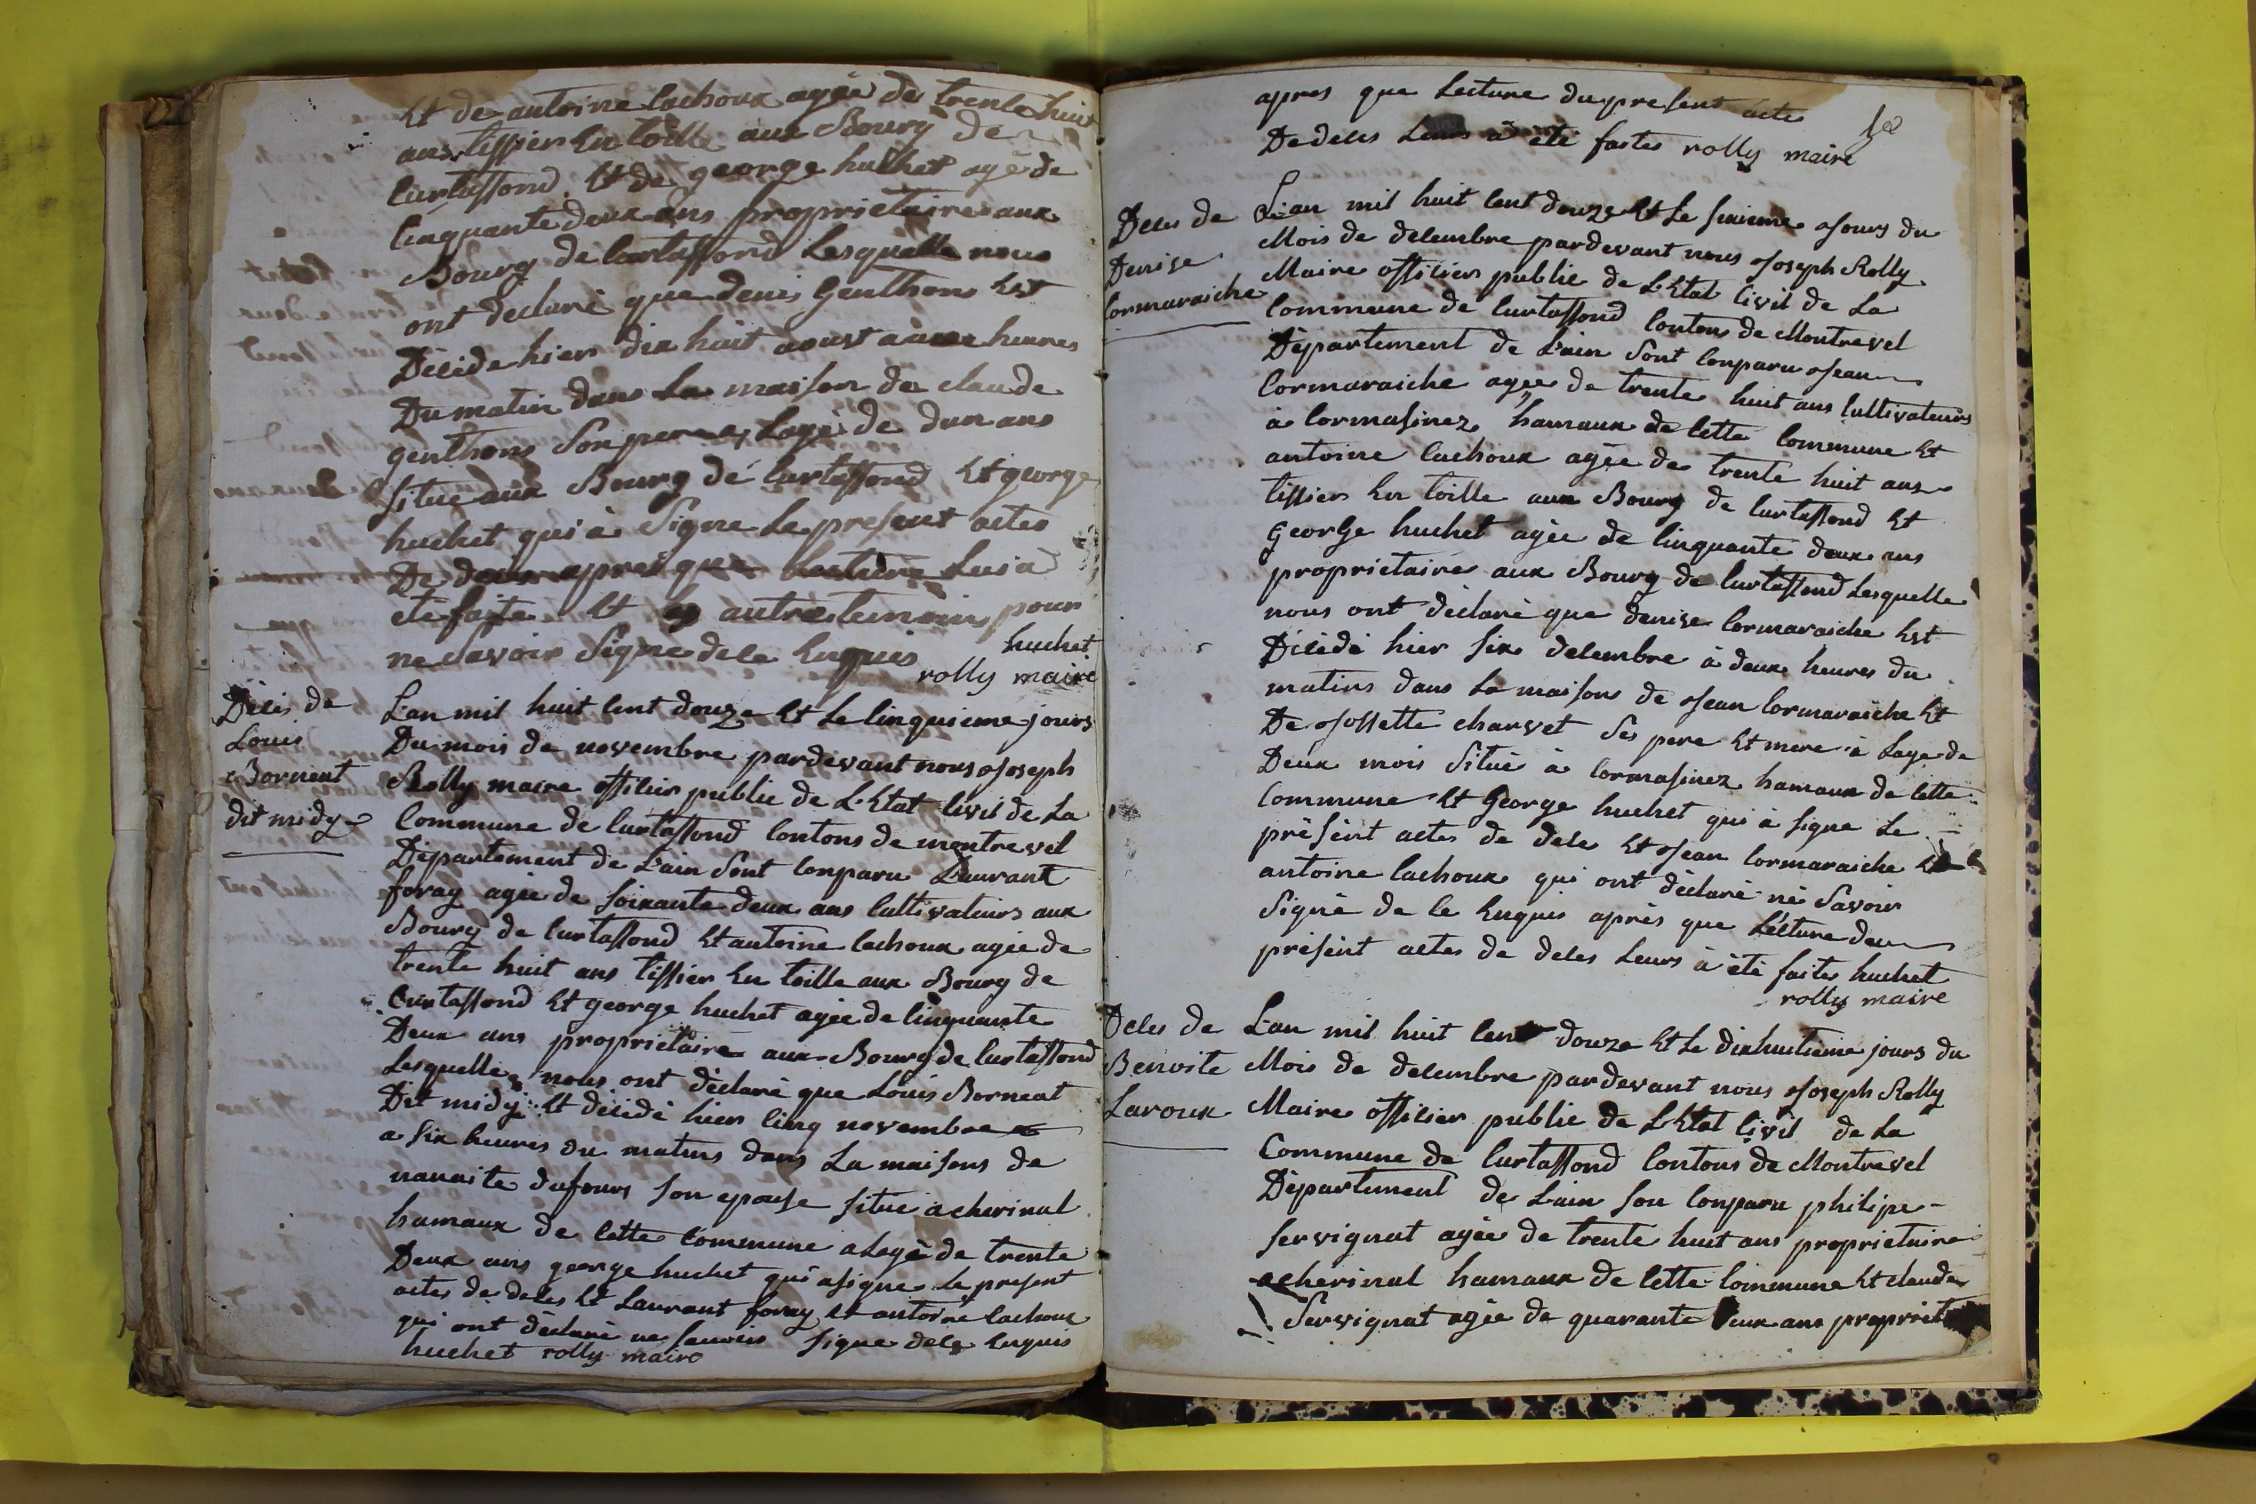 Et de antoine lachoux agée de trente huit
ans tissier En toille aux Bourg de
Curtassond Et de george huchet agé de
Cinquante deux ans proprietaire aux
Bourg de Curtassond Lesquelle nous
ont declaré que denis Genthons Est
Décéde hier dix huit aoust à heures
Du matin dans La maison de claude
genthons Son pere Lagé de dux ans
situe aux Bourg dé Curtassond Et george
huchet qui à Signe Le present actes
De deces apres que Lecture Lui a
été faite Et autres temoins pour
ne Savoir Signe de ce Enquis huchet
rolly maire
Décés de
Louis
Borneat
dit midy
L'an mil huit Cent douze Et Le Cinquieme jours
Du mois de novembre pardevant nous Joseph
Rolly maire officier public de L'Etat Civil de La
Commune de Curtassond Contons de montrevel
Département de L'ain Sont Conparu Laurant
foray agée de soixante deux ans Cultivateurs aux
Bourg de Curtassond Et antoine lachoux agée de
trente huit ans tissier En toille aux Bourg de
Curtassond Et george huchet agée de Cinquante
Deux ans proprietaire aux Bourg de Curtassond
Lesquelle nous ont déclaré que Louis Borneat
Dit midy Et décédé hier Cinq novembre
a six heures du matins dans La maisons de
dufours son epouse situé a cherinal
hamaux de Cette Commune a Lagé de trente
Deux ans george huchet qui a signe Le present
actes de deces Et Laurant foray Et antoine lachoux
qui ont declaré ne savoir signe de ce Enquis
huchet rolly maire
apres que Lecture du present acte
De deces Leurs à été faites rolly maire
Deces de
Denise
Cormaraiche
L'an mil huit Cent douze Et Le sixieme Jours du
Mois de decembre pardevant nous Joseph Rolly
Maire officier public de L'Etat Civil de La
Commune de Curtassond Contons de Montrevel
Département de L'ain Sont Conparu Jean
Cormaraiche agée de trente huit ans Cultivateurs
à Cormasinez hamaux de Cette Commune Et
antoine lachoux agée de trente huit ans
tissier En toille aux Bourg de Curtassond Et
George huchet agée de Cinquante deux ans
proprietaire aux Bourg de Curtassond Lesquelle
nous ont déclaré que denise Cormaraiche Est
Décédé hier six decembre à deux heures du
matins dans La maisons de Jean Cormaraiche Et
De Jossette charvet Ses pere Et mere à Lage de
Deux mois Situé à Cormasinez hamaux de Cette
Commune Et George huchet qui à signe Le
présént actes de deces Et Jean Cormaraiche Et
antoine lachoux qui ont déclaré né Savoir
Signé de ce Enquis aprés que Lécture du
présént actes de deces Leurs à été faites huchet
rolly maire
Deces de
Benoite
Laroux
L'an mil huit Cent douze Et Le dixhuitieme jours du
Mois de decembre pardevant nous Joseph Rolly
Maire officier public de L'Etat Civil de La
Commune de Curtassond Contons de Montrevel
Département de L'ain son Conparu philipe
servignat agée de trente huit ans proprietaire
a cherinal hamaux de Cette Commune Et claude
Servignat agée de quarante deux ans